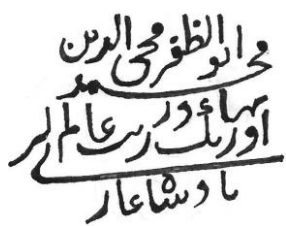 ابو الظفر محی الدین
محمد
بہادر
اورنگ زیب عالم گیر
بادشاہ غازی